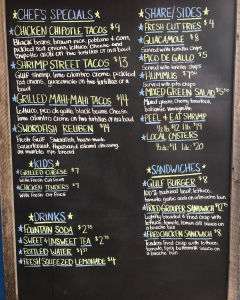 CHEF'S SPECIALS
CHICKEN CHIPOTLE TACOS $9
Black beans, brown rice, pickles + corn,
pickled red onions, lettuce, cheese and
chipotle aioli on two tortillas in a bowl
SHRIMP STREET TACOS $13
Gulf shrimp, lime cilantro creme, pickled
red onions, guacamole on two tortillas or
bowl
GRILLED MAHI-MAHI TACOS $14
Lettuce, pico de gallo, black beans, cheese
lime cilantro creme on two tortillas in a bowl
SWORDFISH REUBEN $14
Fresh Gulf Swordfish, house made
Sauerkraut, thousand island dressing
on marble rye bread
KIDS
GRILLED CHEESE $7
with Fresh Cut Fries
CHICKEN TENDERS $7
with Fresh Cut Fries
DRINKS
FOUNTAIN SODA $2.75
SWEET + UNSWEET TEA $2
BOTTLED WATER
FRESH SQUEEZED LEMONADE $4
SHARE/SIDES
FRESH CUT FRIES $4
GUACAMOLE $8
Served with tortilla chips
PICO DE GALLO $5
Served with tortilla chips
HUMMUS
Served with pita chips
MIXED GREEN SALAD
Mixed greens, Cherry tomatoes,
balsamic vinaigrette
PEEL + EAT SHRIMP
1/4 lb 1/2 lb
LOCAL OYSTERS
1/2 dz $11 1 dz $20
SANDWICHES
GULF BURGER $8
100% natural beef, lettuce,
tomato, garlic aioli on a brioche bun
FRIED GROUPER SANDWICH
Lightly breaded + fried crisp with
lettuce, tomato, lemon aioli on
a brioche bun
FRIED CHICKEN SANDWICH $8
Tenders fried crisp with lettuce,
tomato, spicy buttermilk sauce on
a brioche bun